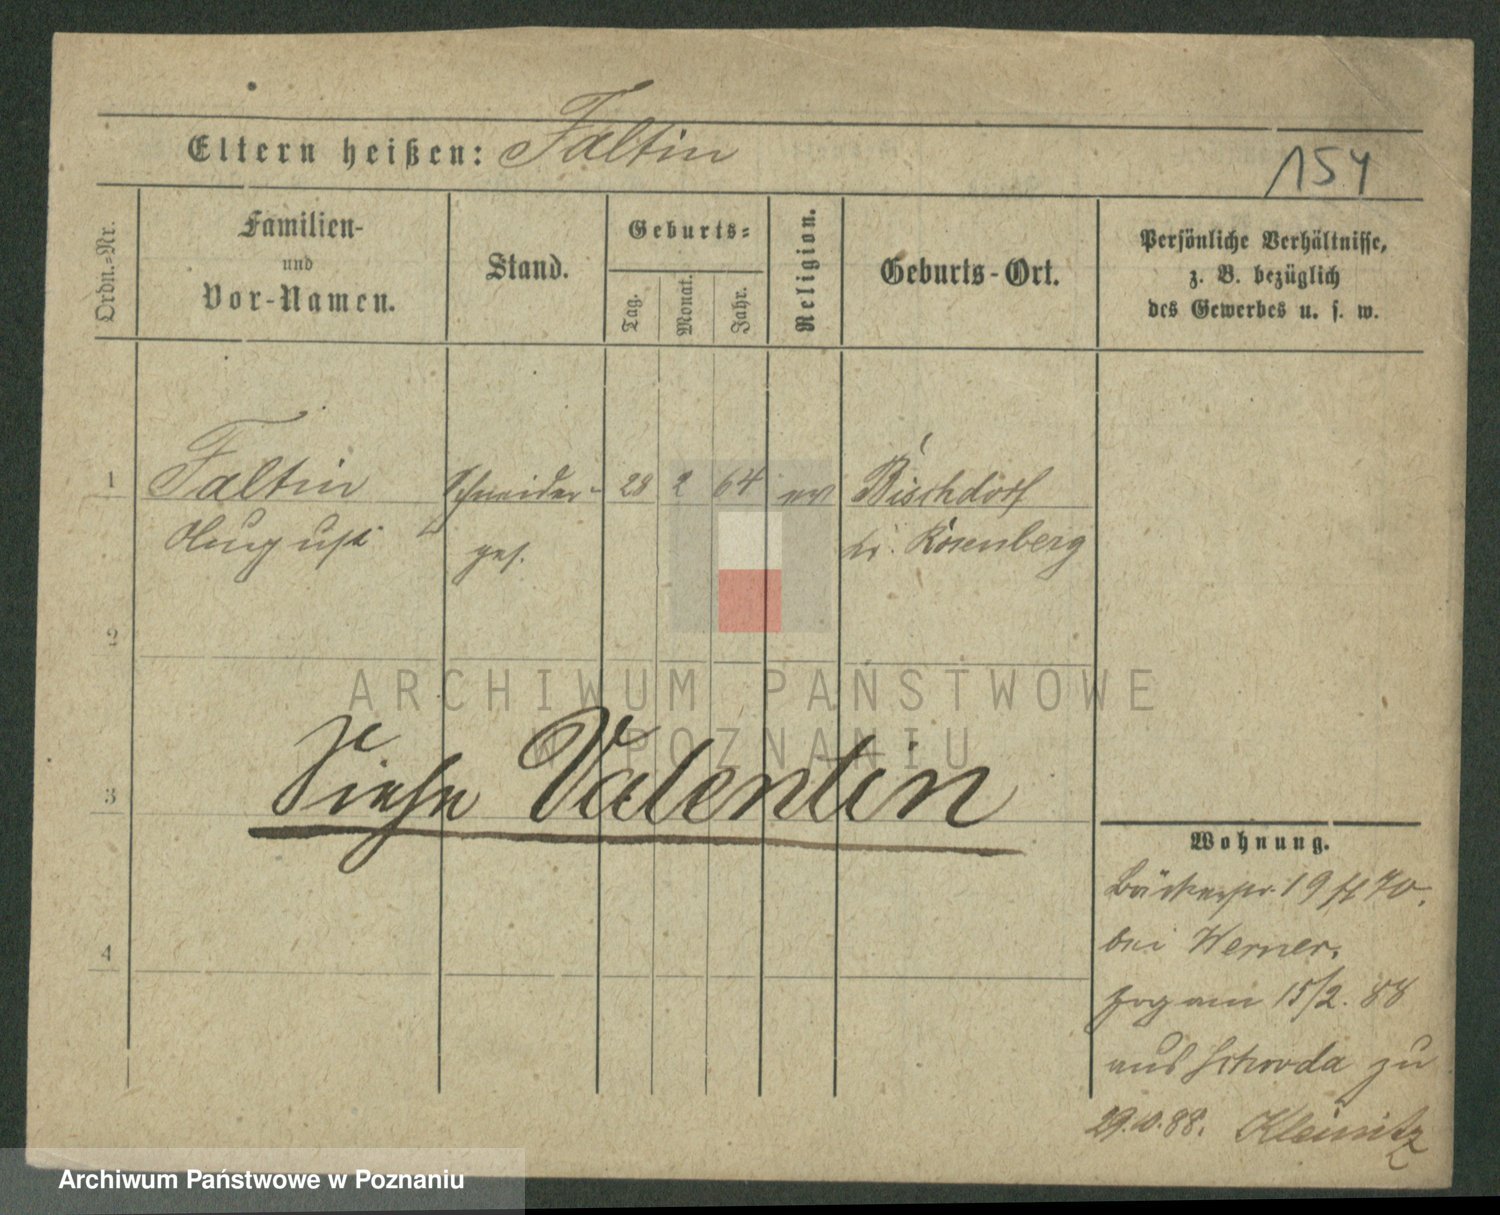 Eltern heißen: Faltin
154
Ordn.-Nr.
Familien-
und
Vor-Namen.
Stand.
Geburts-
Tag.
Monat.
Jahr.
Religion.
Geburts-Ort.
Persönliche Verhältnisse,
z. B. bezüglich
des Gewerbes u. s. w.
1 Faltin Schneider- 28 2 64 ev Bischdorf
August ges. Kr. Rosenberg
2
ARCHIWUM PAŃSTWOWE
W POZNANIU
3 Siehe Valentin
4
Wohnung.
Bäckerstr. 19 70.
bei Werner.
zog am 15/2. 88
aus Schroda zu
29. 88. Kleinitz
Archiwum Państwowe w Poznaniu